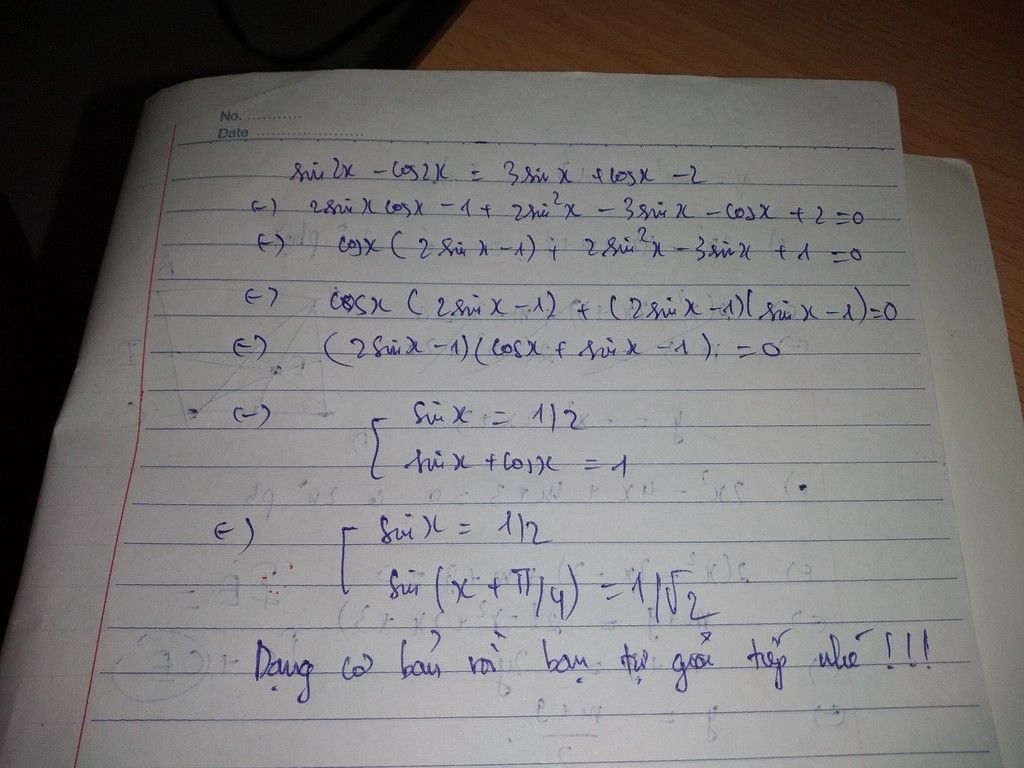 No. ...........
Date ......................
sin2x - cos2x = 3sinx + cosx - 2
(-) 2sinx cosx - 1 + 2sin²x - 3sinx - cosx + 2 = 0
(-) cosx ( 2sinx - 1) + 2sin²x - 3sinx + 1 = 0
(-) cosx ( 2sinx - 1) + ( 2sinx - 1)( sinx - 1) = 0
(-) ( 2sinx - 1)( cosx + sinx - 1 ) = 0
(-) [ sinx = 1/2
sinx + cosx = 1
(-) [ sinx = 1/2
sin(x + π/4) = 1/√2
Dạng cơ bản rồi bạn tự giải tiếp nhé !!!